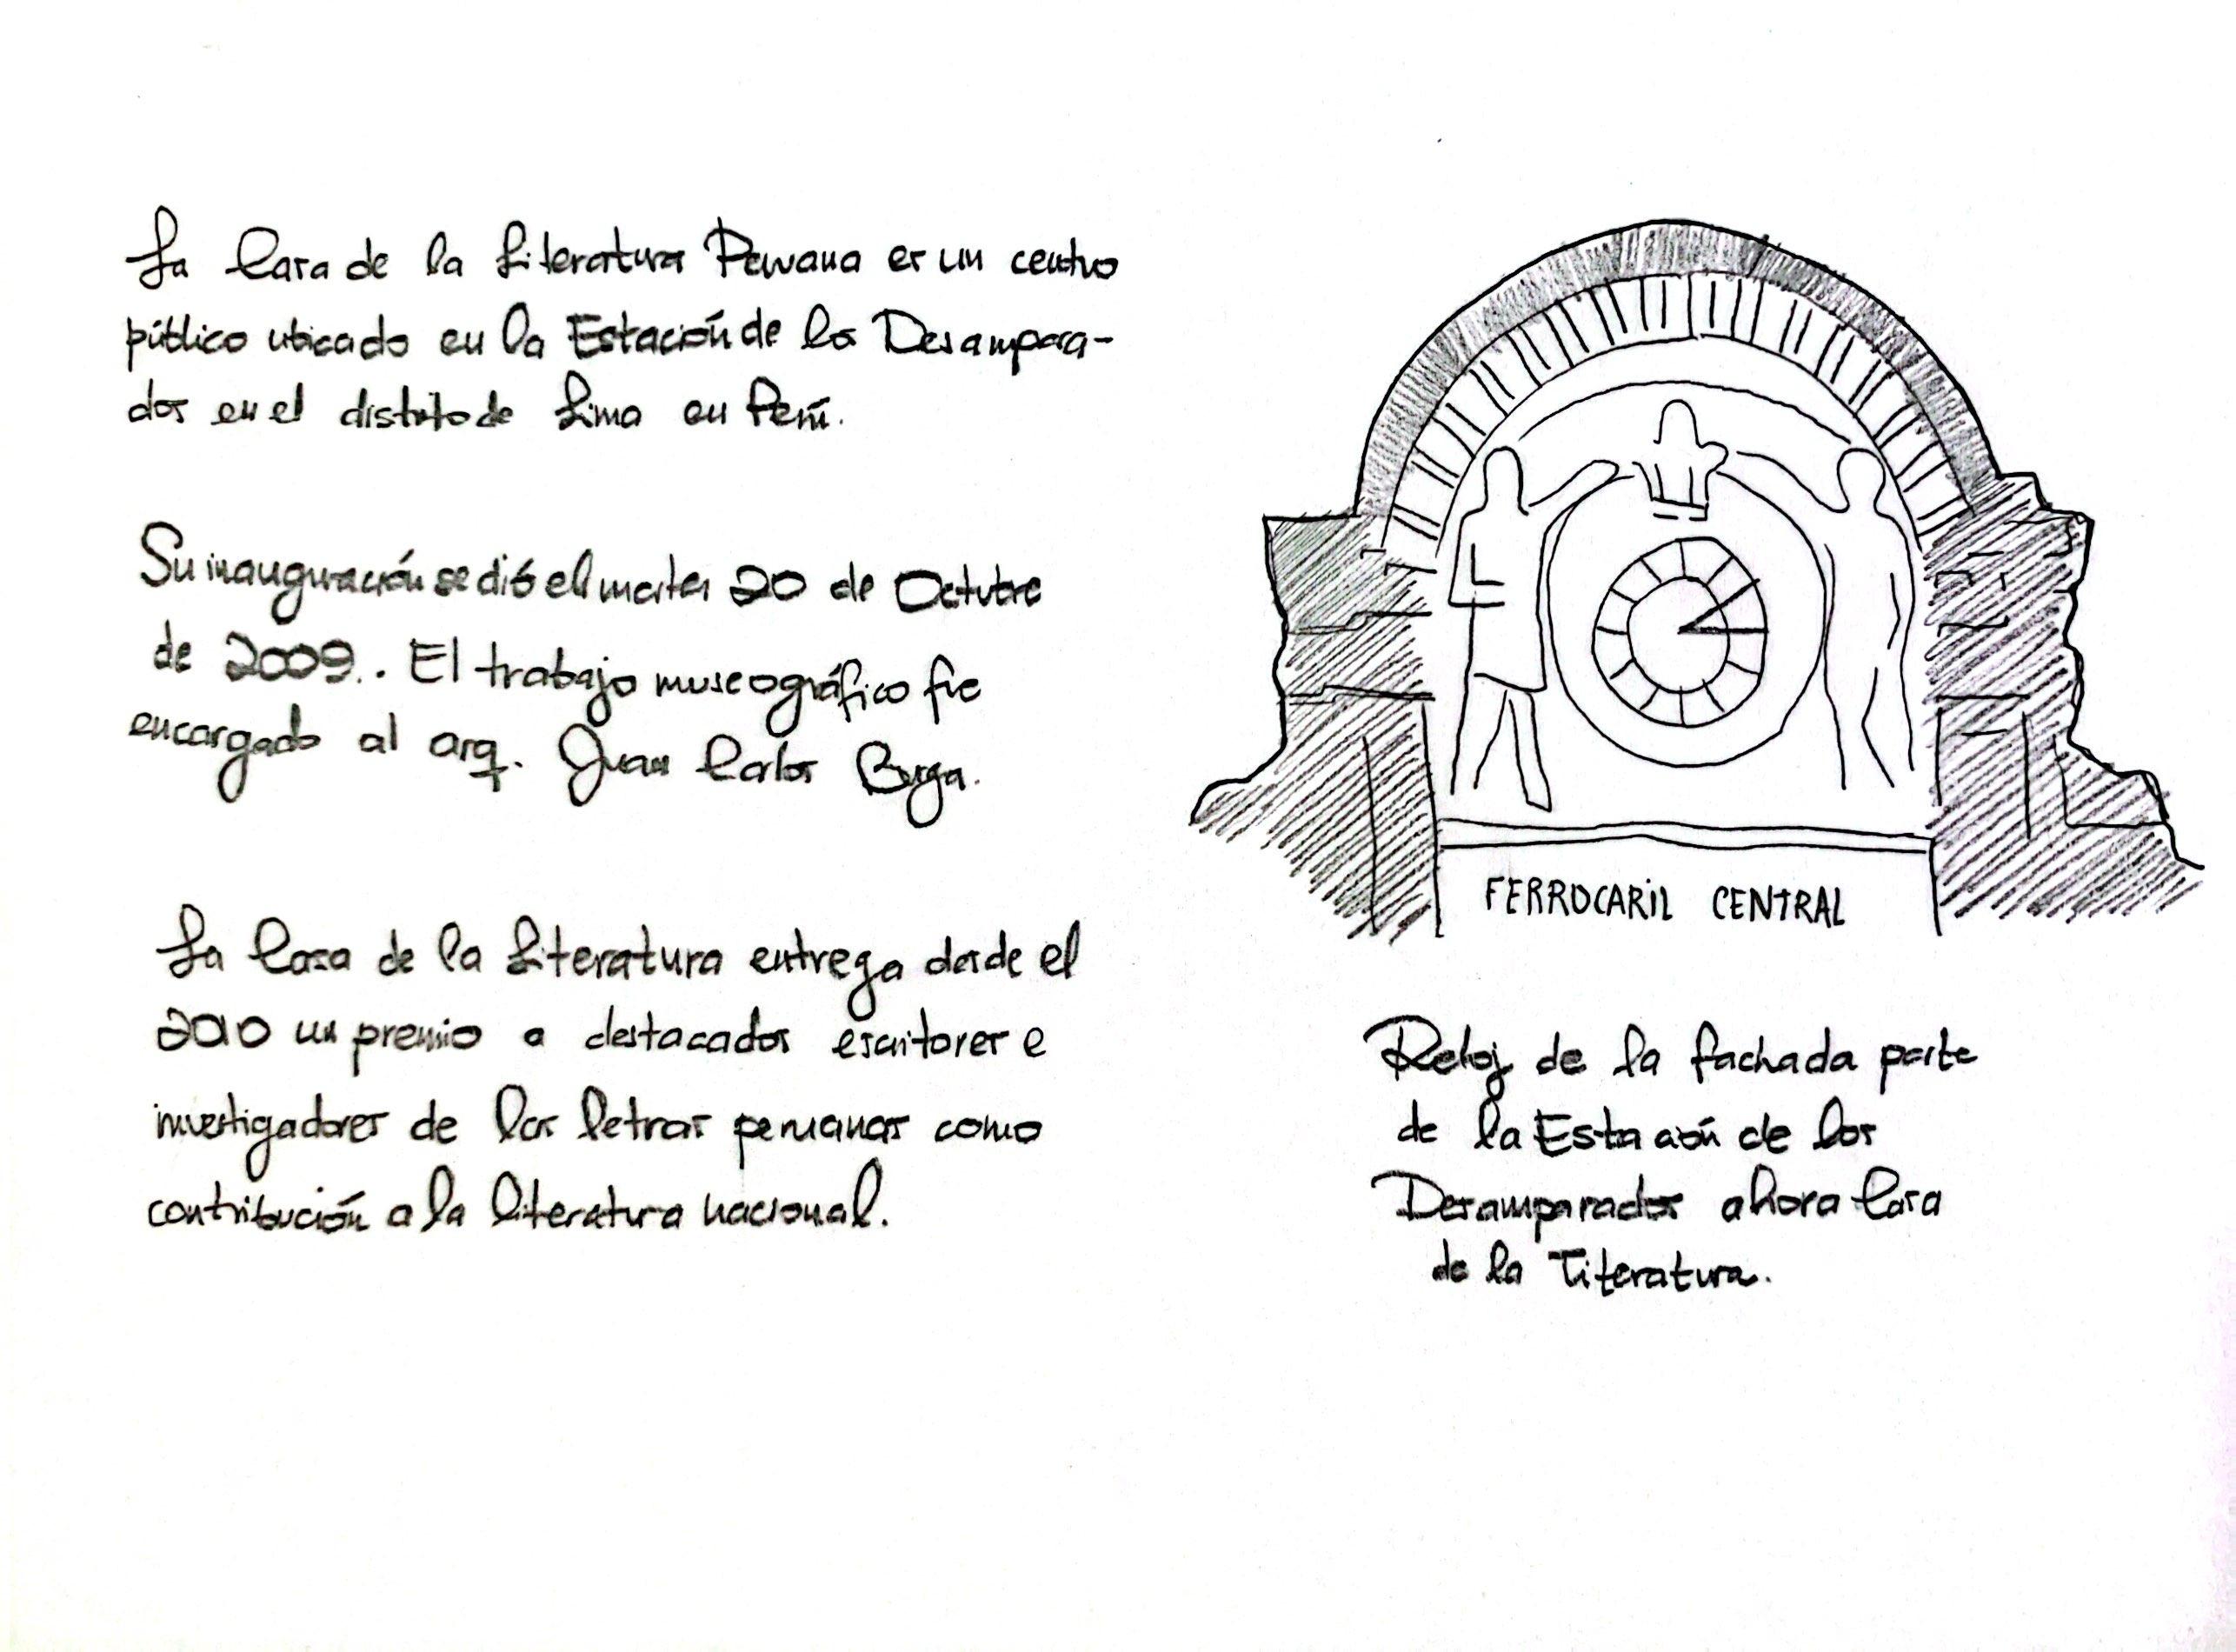 La Casa de la Literatura Peruana es un centro
público ubicado en la Estación de los Desampara-
dos en el distrito de Lima en Perú.
Su inauguración se dió el martes 20 de Octubre
de 2009.. El trabajo museográfico fue
encargado al arq. Juan Carlos Burga.
La Casa de la Literatura entrega desde el
2010 un premio a destacados escritores e
investigadores de las letras peruanas como
contribución a la literatura nacional.
FERROCARiL CENTRAL
Reloj de la fachada parte
de la Estación de los
Desamparados ahora Casa
de la Literatura.